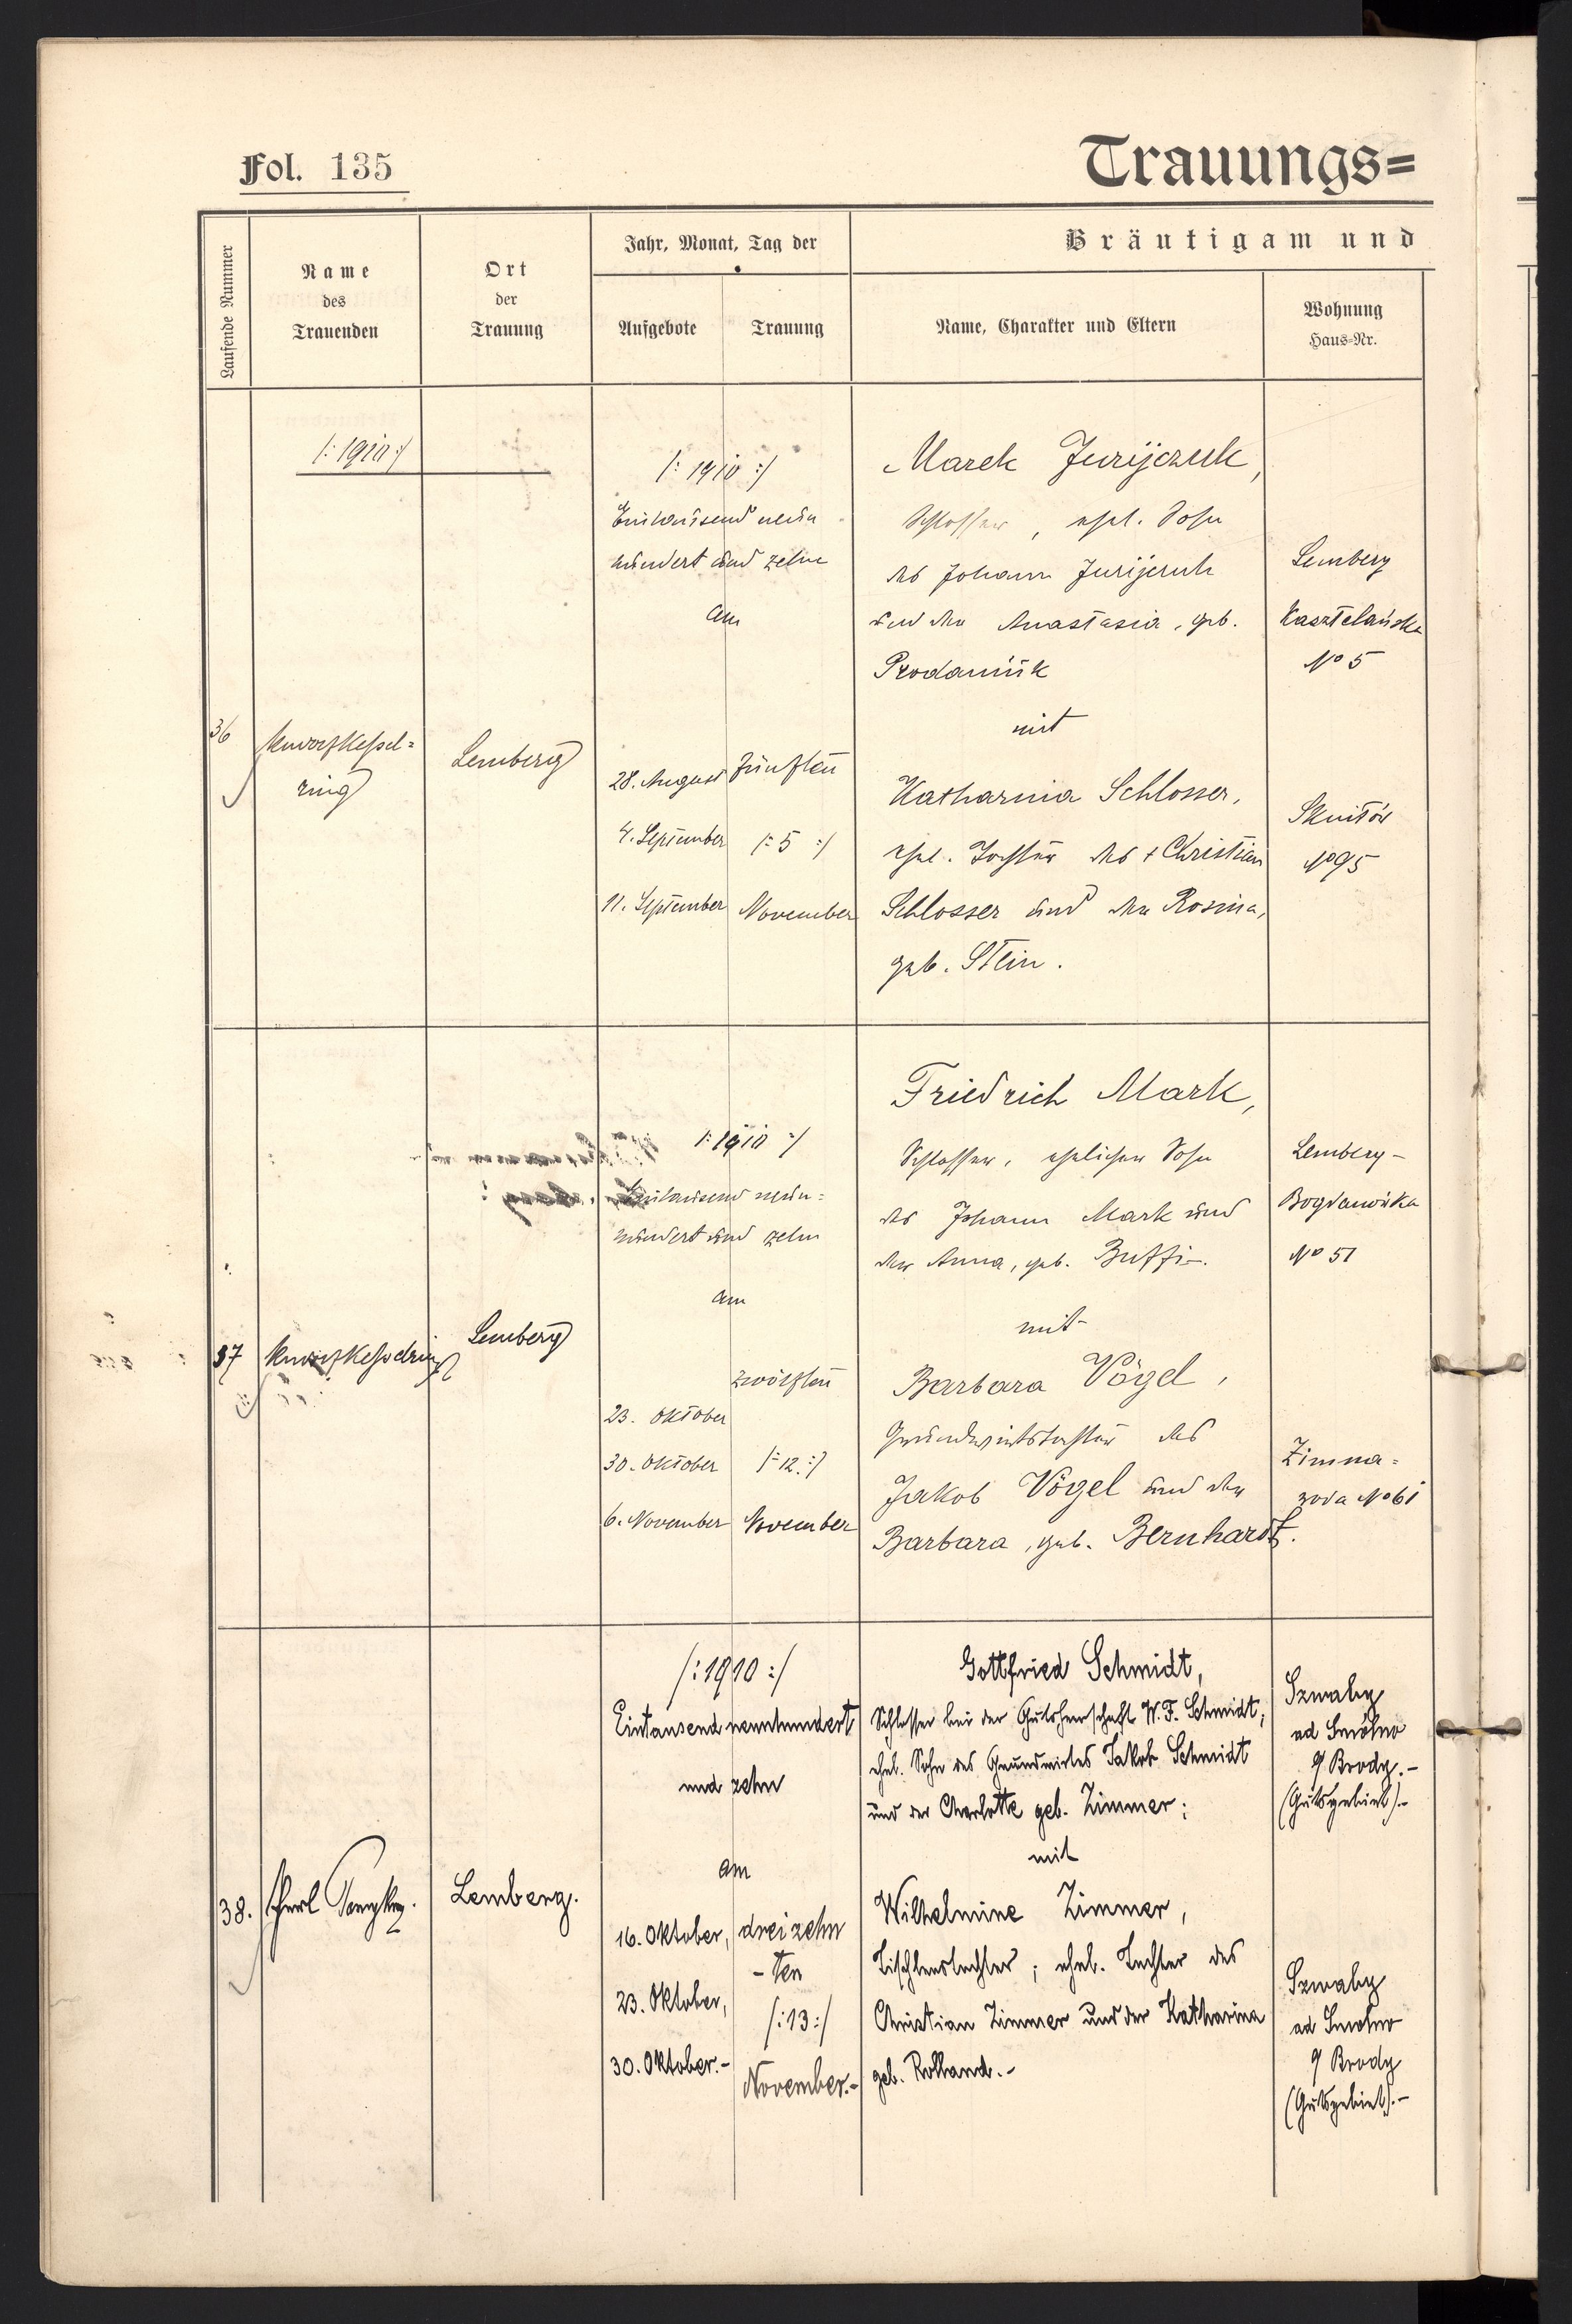 Fol. 135
Trauungs=
Laufende Nummer
Name
des
Trauenden
Ort
der
Trauung
Jahr, Monat, Tag der
Aufgebote
Trauung
Bräutigam und
Name, Charakter und Eltern
Wohnung
Haus-Nr.
/: 1910 :/
36
Lemberg
/: 1910 :/
Eintausend neun
hundert und zehn
am
28. August
4. September
11. September
fünften
/: 5 :/
November
Marek Jurijczuk,
Schlosser, ehel. Sohn
des Johann Jurijczuk
und der Anastasia, geb.
Prodaniuk
mit
Katharina Schlosser,
ehel. Tochter des + Christian
Schlosser und der Rosina,
geb. Stein.
Lemberg
Kasztelańska
No 5
Sknilów
No 95
37
Lemberg
/: 1910 :/
Eintausend neun=
hundert und zehn
am
23. Oktober
30. Oktober
6. November
zwölften
/: 12. :/
November
Friedrich Mark,
Schlosser, ehelicher Sohn
des Johann Mark und
der Anna, geb.
mit
Barbara Vögel,
Grundwirtstochter des
Jakob Vögel und der
Barbara, geb. Bernhardt.
Lemberg-
Bogdanówka
No 51
Zimna=
woda No 61
38.
Lemberg.
/: 1910 :/
Eintausend neunhundert
und zehn
am
16. Oktober,
23. Oktober,
30. Oktober.-
dreizehn
-ten
/: 13 :/
November.-
Gottfried Schmidt,
Schlosser bei der Gutsherrschaft W. F. Schmidt,
ehel. Sohn des Grundwirtes Jakob Schmidt
und der Charlotte geb. Zimmer;
mit
Wilhelmine Zimmer,
Tischlerstochter; ehel. Tochter des
Christian Zimmer und der Katharina
geb. Rolland.-
Szwaby
ad Smólno
q Brody.-
(Gutsgebiet).-
Szwaby
ad Smolno
q Brody
(Gutsgebiet).-